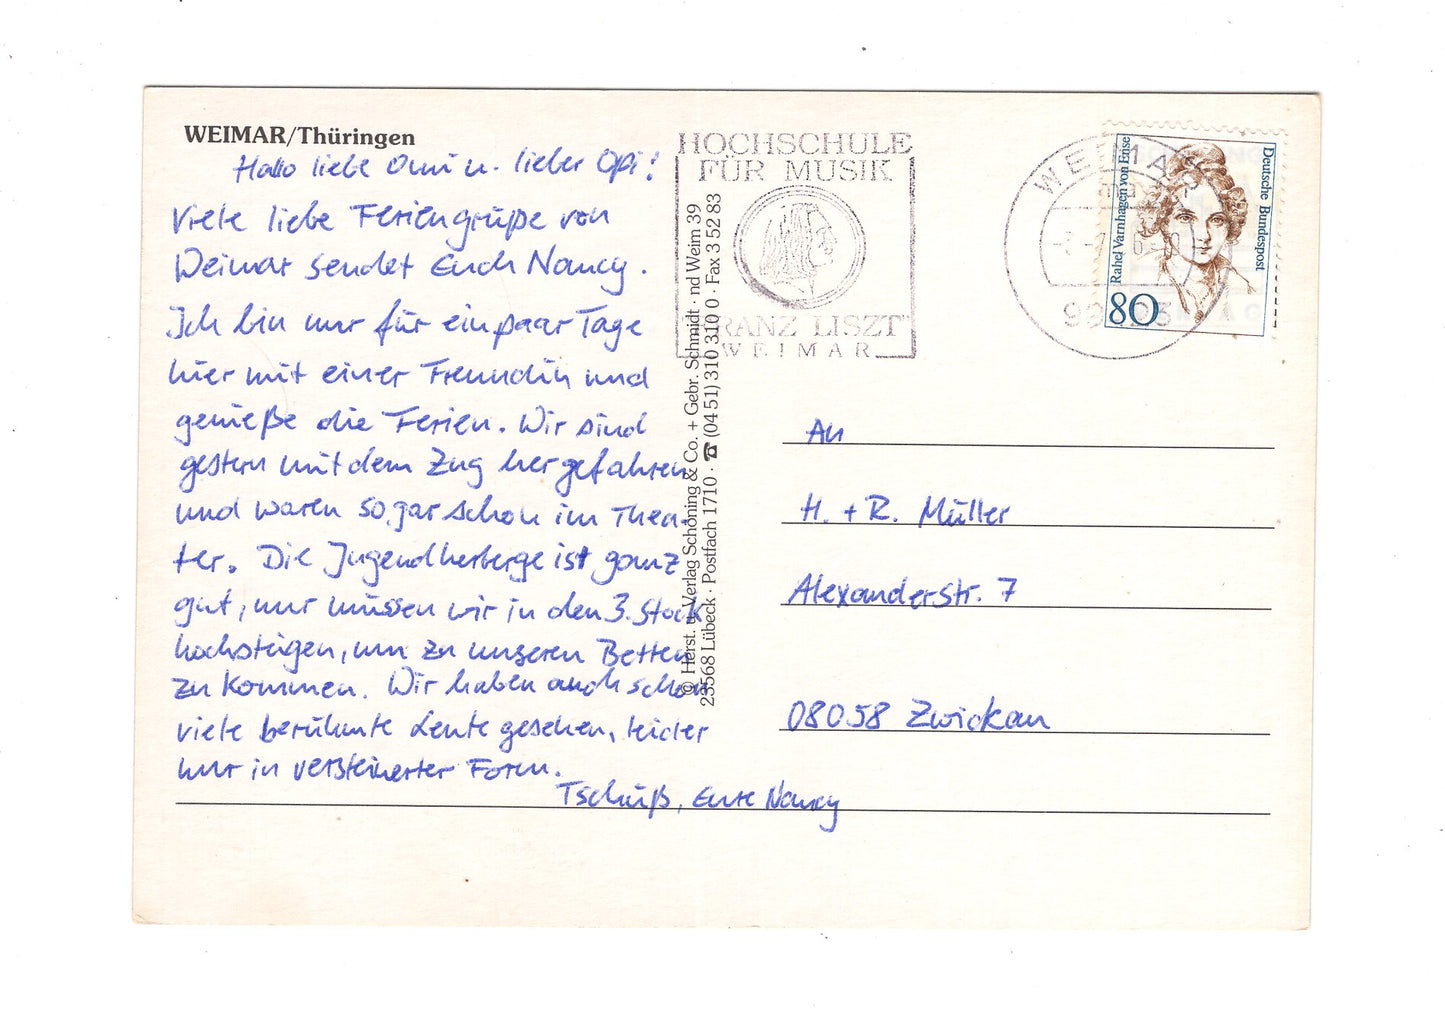 WEIMAR/Thüringen
Hallo liebe Omi u. lieber Opi!
Viele liebe Feriengrüße von
Weimar sendet Euch Nancy.
Ich bin nur für ein paar Tage
hier mit einer Freundin und
genieße die Ferien. Wir sind
gestern mit dem Zug hergefahren
und waren sogar schon im Thea-
ter. Die Jugendherberge ist ganz
gut, nur müssen wir in den 3. Stock
hochsteigen, um zu unseren Betten
zu kommen. Wir haben auch schon
viele berühmte Leute gesehen, leider
nur in versteinerter Form.
Tschüß, Eure Nancy
© Herst. u. Verlag Schöning & Co. + Gebr. Schmidt · nd Weim 39
23568 Lübeck · Postfach 1710 · ☎ (04 51) 310 310 0 · Fax 3 52 83
HOCHSCHULE
FÜR MUSIK
FRANZ LISZT
WEIMAR
WEIMAR
Rahel Varnhagen von Ense
Deutsche Bundespost
80
An
H. + R. Müller
Alexanderstr. 7
08058 Zwickau